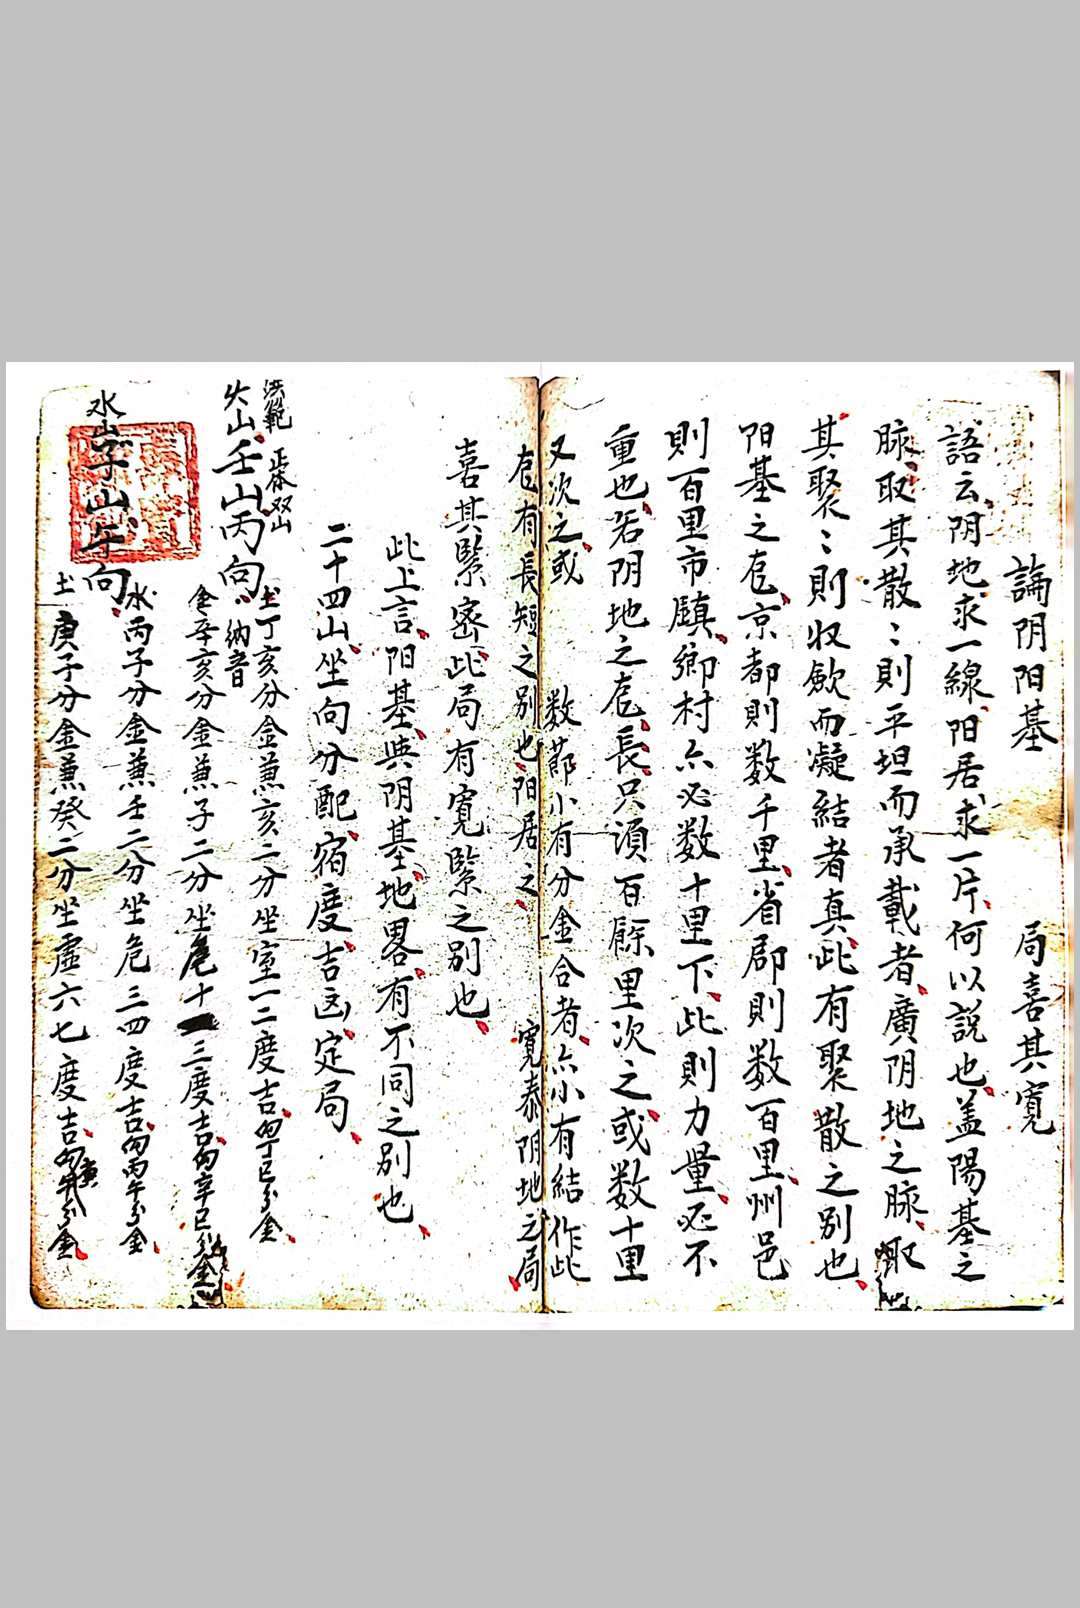 論阴阳基
語云阴地求一線阳居求一片何以説也盖陽基之
脉取其散〻則平坦而承載者廣阴地之脉取
其聚〻則収歛而凝結者真此有聚散之别也
阳基之㡳京都則数千里省郡則数百里州邑
則百里市鎮鄉村亦必数十里下此則力量必不
重也若阴地之㡳長只須百餘里次之或数十里
又次之或数節小有分金合者亦小有結作此
㡳有長短之别也阳居之局喜其寛
寛泰阴地之局
喜其緊密此局有寛緊之别也
此上言阳基與阴基地畧有不同之别也
二十四山坐向分配宿度吉凶定局
洪範
正体双山
火山壬山丙向
納音
土丁亥分金兼亥二分坐室一二度吉向丁巳分金
金辛亥分金兼子二分坐危十三度吉向辛巳分金
水山子山午向
水丙子分金兼壬二分坐危三四度吉向丙午分金
土庚子分金兼癸二分坐虚六七度吉向庚午分金